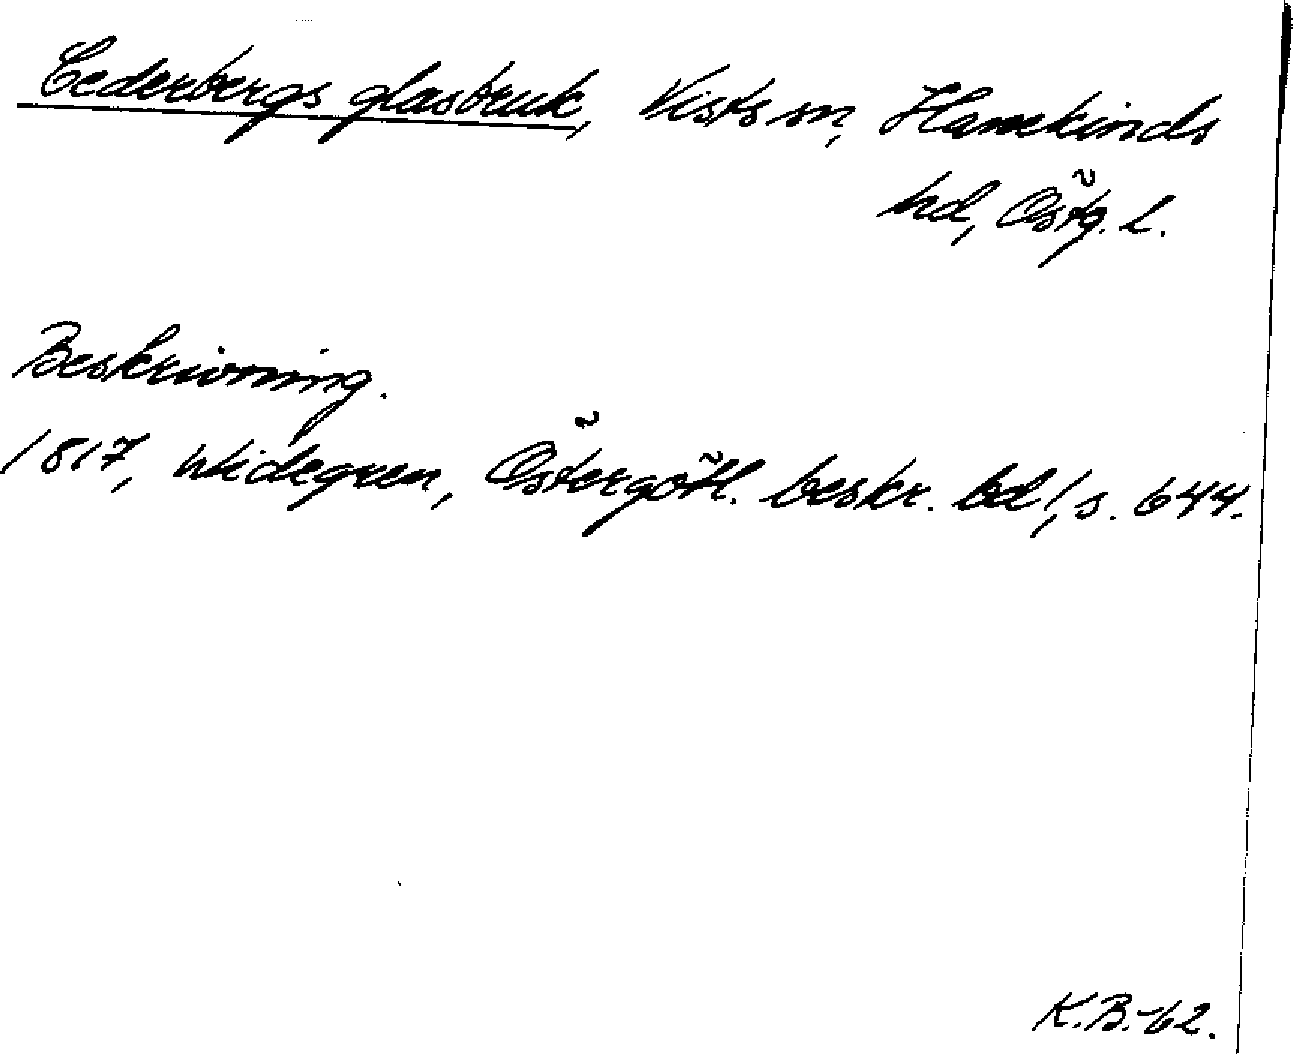 Cederbergs glasbruk, Vists sn, Hanekinds
hd, Östg. L.
Beskrivning.
1817, Widegren, Östergötl. beskr. bd 1, s. 644.
K.B.-62.